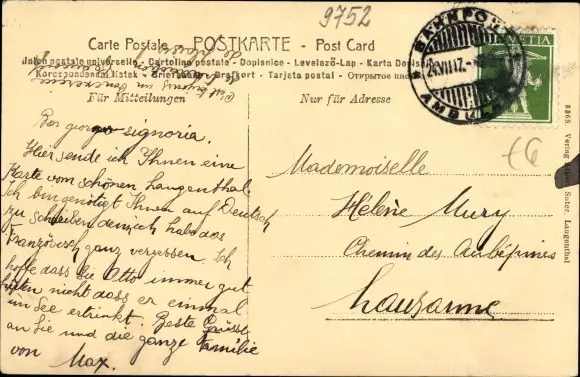 9752
Carte Postale - POSTKARTE - Post Card
Union postale universelle - Cartolina postale - Dopisnice - Levelező-Lap - Karta
Korrespondenzkarte listek - Briefkaart - Brefkort - Tarjeta postal - Открытое
Für Mitteilungen
Nur für Adresse
BAHNPOST
AMBULANT
HELVETIA
5
€6
Bon giorno signoria.
Hier sende ich Ihnen eine
Karte vom schönen Langenthal
Ich bin genötigt Ihnen auf Deutsch
zu schreiben denn ich habe das
Französisch ganz vergessen. Ich
hoffe dass Sie Otto immer gut
hüten nicht dass er einmal
im See ertrinkt. Beste Grüsse
an Sie und die ganze Familie
von Max.
Mademoiselle
Hélène Mury
Chemin des Aubépines
Lausanne
Suter, Langenthal